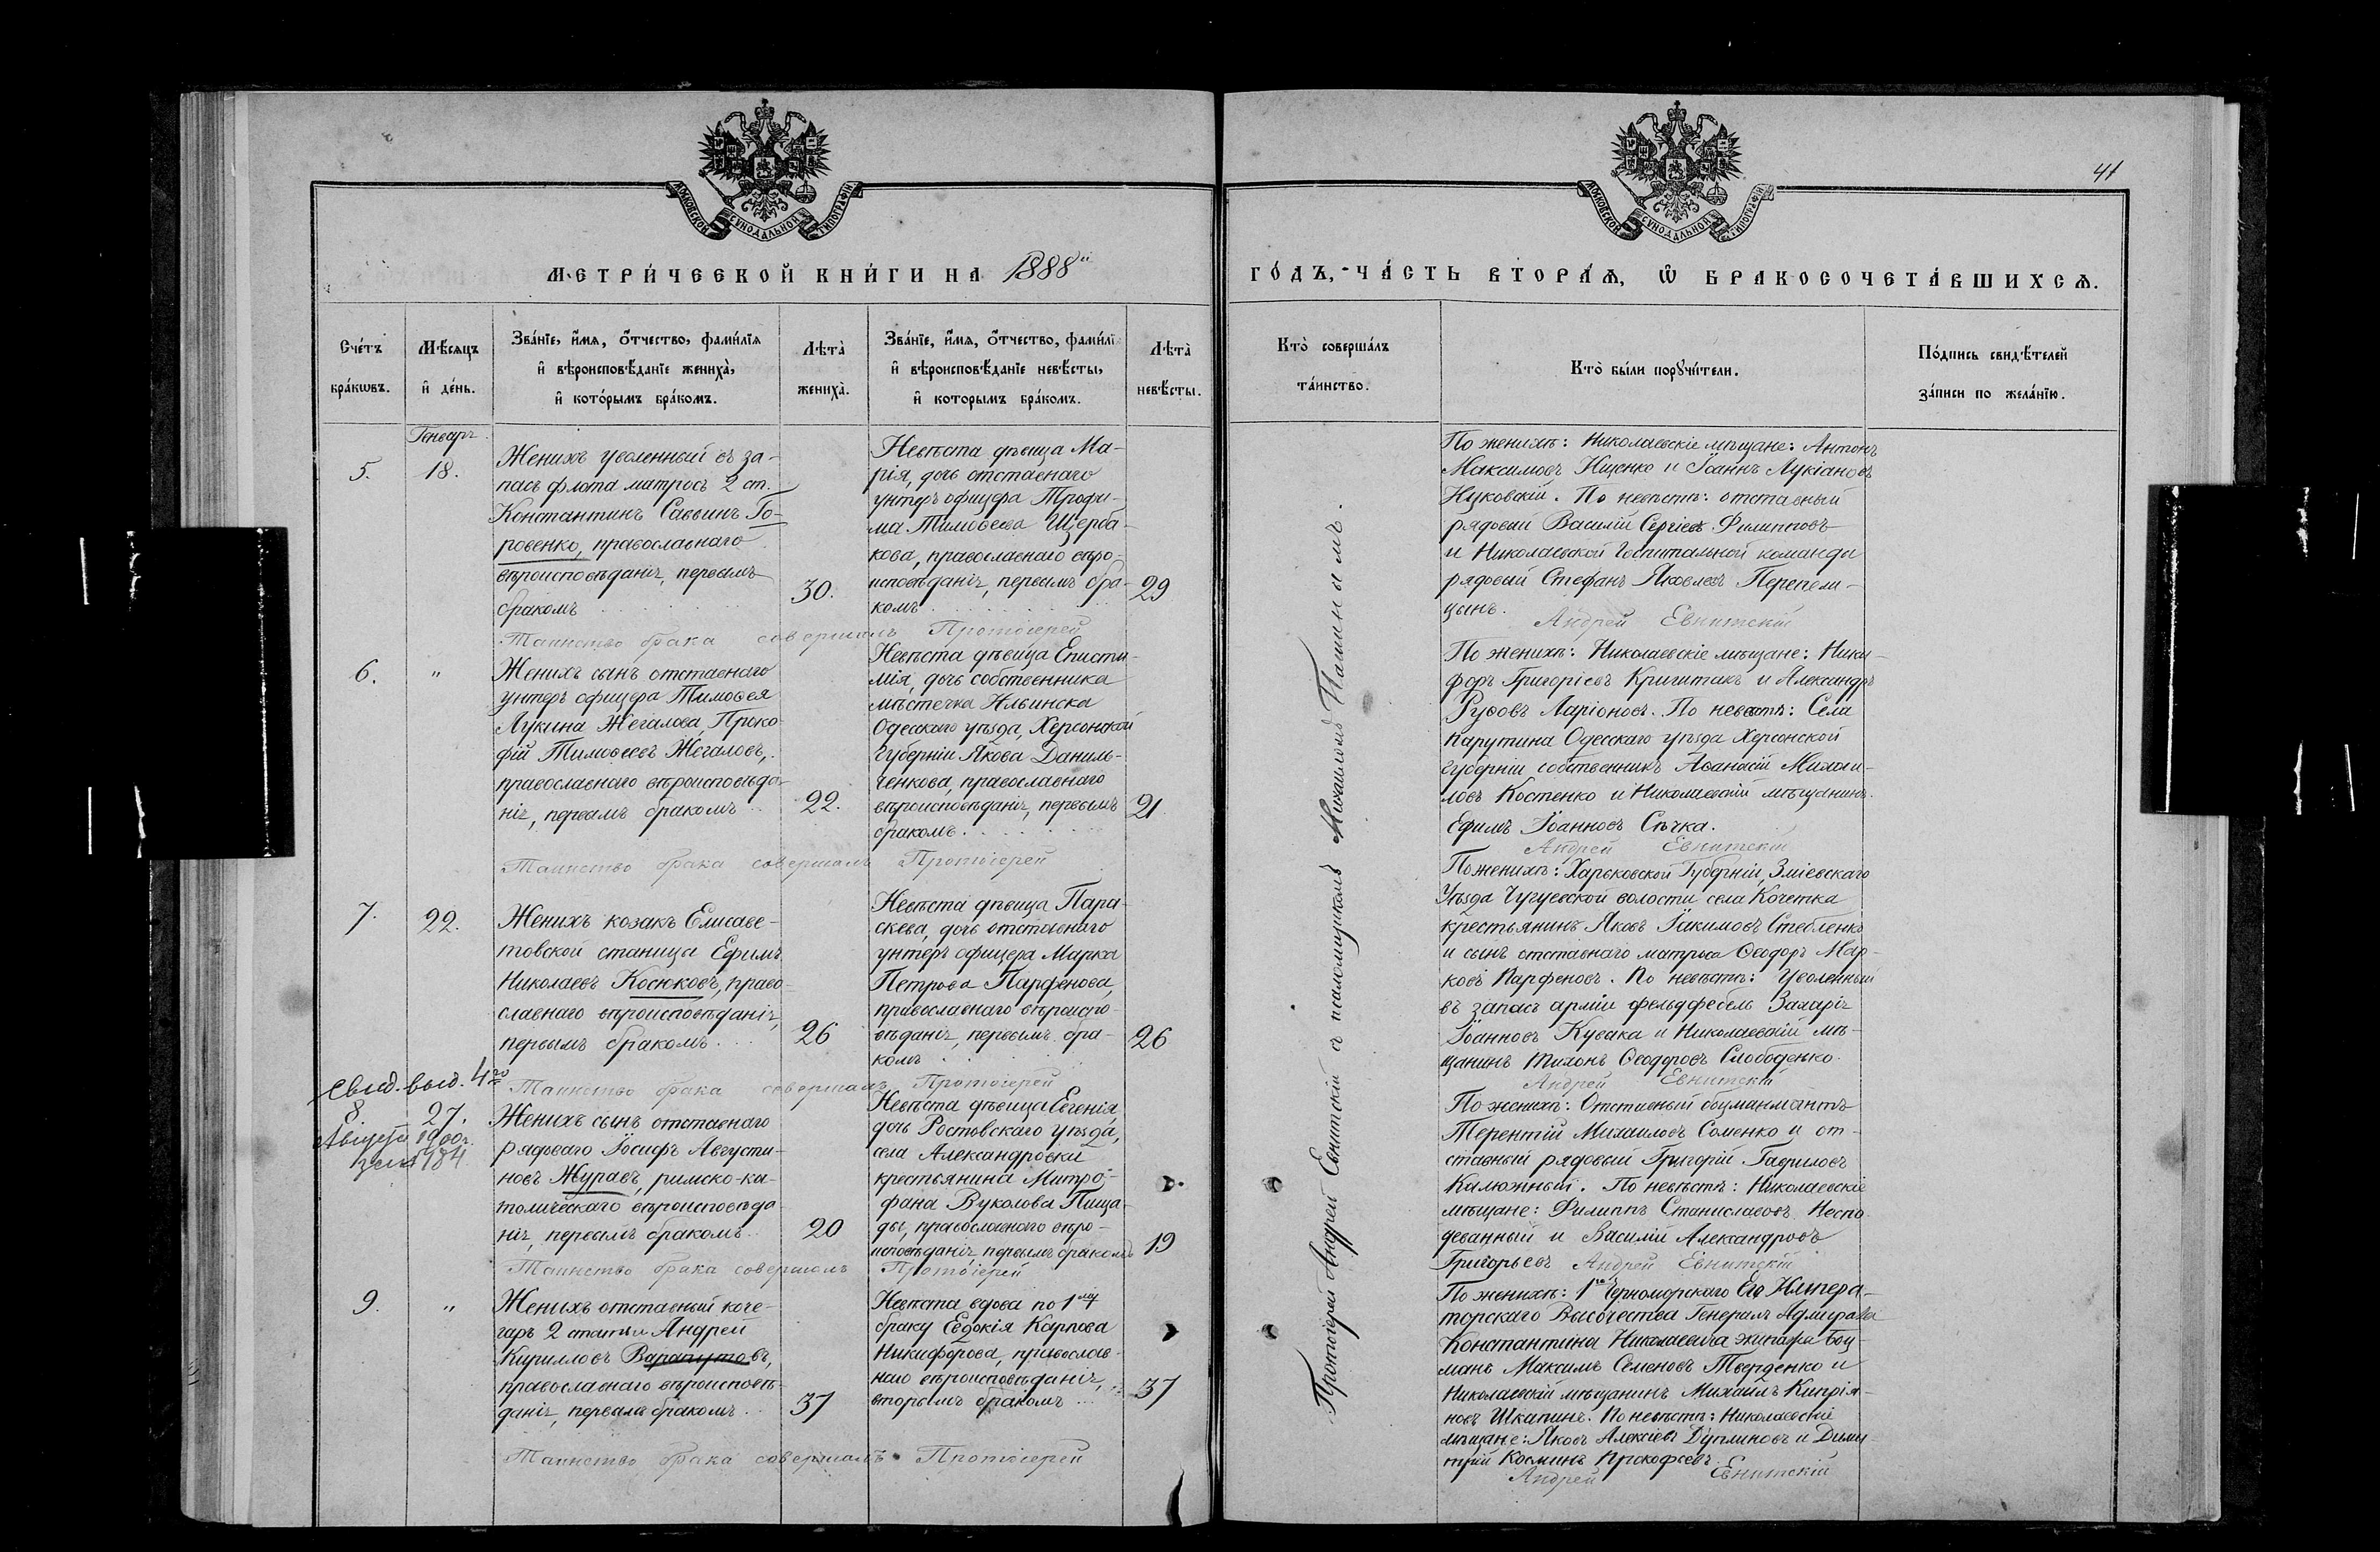 МОСКОВСКОЙ СѴНОДАЛЬНОЙ ТИПОГРАФІИ
МОСКОВСКОЙ СѴНОДАЛЬНОЙ ТИПОГРАФІИ
41
МЕТРИ́ЧЕСКОЙ КНИ́ГИ НА 1888й
ГО́ДЪ, ЧА́СТЬ ВТОРА́Ѧ, Ѡ҆ БРАКОСОЧЕТА́ВШИХСѦ.
Сче́тъ бра́кѡвъ.
Мѣ́сяцъ и҆ де́нь.
Зва́нїе, и҆́мѧ, о҆́тчество, фами́лїѧ
и҆ вѣроисповѣ́данїе жениха̀,
и҆ кото́рымъ бра́комъ.
Лѣта̀ жениха̀.
Зва́нїе, и҆́мѧ, о҆́тчество, фами́лї
и҆ вѣроисповѣ́данїе невѣ́сты,
и҆ которымъ бра́комъ.
Лѣта̀ невѣ́сты.
Кто̀ соверша́лъ та́инство.
Кто̀ бы́ли порꙋчи́тели.
По́дпись свидѣ́телей
за́писи по жела́нїю.
Генварь
5.
18.
Женихъ уволенный въ за-
пасъ флота матросъ 2 ст.
Константинъ Саввинъ Го-
ровенко, православнаго
вѣроисповѣданія, первымъ
бракомъ
30.
Невѣста дѣвица Ма-
рія, дочь отставнаго
унтеръ офицера Трофи-
ма Тимоѳеева Щерба-
кова, православнаго вѣро-
исповѣданія, первымъ бра-
комъ
29
По женихѣ: Николаевскіе мѣщане: Антонъ
Максимовъ Ищенко и Іоаннъ Лукіановъ
Нуковскій. По невѣстѣ: отставный
рядовый Василій Сергіевъ Филиповъ
и Николаевской Госпитальной команды
рядовый Стефанъ Яковлевъ Перепели-
цынъ.
Таинство брака совершалъ Протоіерей Андрей Евнитскій
6.
"
Женихъ сынъ отставнаго
унтеръ офицера Тимоѳея
Лукина Жегалова, Проко-
фій Тимоѳеевъ Жегаловъ,
православнаго вѣроисповѣда-
нія, первымъ бракомъ
22.
Невѣста дѣвица Еписти-
мія, дочь собственника
мѣстечка Ильинска
Одесскаго уѣзда, Херсонской
Губерніи Якова Даниль-
ченкова, православнаго
вѣроисповѣданія, первымъ
бракомъ.
21
По женихѣ: Николаевскіе мѣщане: Ники-
форъ Григоріевъ Кришитакъ и Александръ
Руфовъ Ларіоновъ. По невѣстѣ: Села
Парутина Одесскаго уѣзда Херсонской
Губерніи собственникъ Аѳанасій Михаи-
ловъ Костенко и Николаевскій мѣщанинъ
Ефимъ Іоанновъ Сѣчка.
Таинство брака совершалъ Протоіерей Андрей Евнитскій
7.
22.
Женихъ козакъ Елисаве-
товской станицы Ефимъ
Николаевъ Косюковъ, право-
славнаго вѣроисповѣданія,
первымъ бракомъ
26
Невѣста дѣвица Пара-
скева, дочь отставнаго
унтеръ офицера Марка
Петрова Парфенова,
православнаго вѣроиспо-
вѣданія, первымъ бра-
комъ
26
По женихѣ: Харьковской Губерніи, Зміевскаго
Уѣзда Чугуевской волости села Кочетка
крестьянинъ Яковъ Іакимовъ Стебленко
и сынъ отставнаго матроса Ѳеодоръ Мар-
ковъ Парфеновъ. По невѣстѣ: Уволенный
въ запасъ арміи фельдфебель Захарія
Іоанновъ Кувака и Николаевскій мѣ-
щанинъ Тихонъ Ѳеодоровъ Слободенко.
Таинство брака совершалъ Протоіерей Андрей Евнитскій
Свид. выд. 4го
Августа 1900г.
за № 184
8.
27.
Женихъ сынъ отставнаго
рядоваго Іосифъ Августи-
новъ Журавъ, римско-ка-
толическаго вѣроисповѣда-
нія, первымъ бракомъ
20
Невѣста дѣвица Евгенія
дочь Ростовскаго уѣзда,
села Александровки
крестьянина Митро-
фана Вуколова Пища-
ды, православнаго вѣро-
исповѣданія первымъ бракомъ
19
По женихѣ: Отставный боцманматъ
Терентій Михаиловъ Соменко и от-
ставный рядовый Григорій Гавриловъ
Калюжный. По невѣстѣ: Николаевскіе
мѣщане: Филиппъ Станиславовъ Неспо-
деванный и Василій Александровъ
Григорьевъ
Таинство брака совершалъ Протоіерей Андрей Евнитскій
9.
"
Женихъ отставный коче-
гаръ 2 статьи Андрей
Кирилловъ Варапутовъ,
православнаго вѣроисповѣ-
данія, первымъ бракомъ
37
Невѣста вдова по 1му
браку Евдокія Карпова
Никифорова, православ-
наго вѣроисповѣданія,
вторымъ бракомъ
37
По женихѣ: 1го Черноморскаго Его Импера-
торскаго Высочества Генералъ Адмирала
Константина Николаевича экипажа боц-
манъ Максимъ Семеновъ Тверденко и
Николаевскій мѣщанинъ Михаилъ Кипрія-
новъ Шкапинъ. По невѣстѣ: Николаевскіе
мѣщане: Яковъ Алексіевъ Дуплиновъ и Дими-
трій Косминъ Прокофьевъ.
Таинство брака совершалъ Протоіерей Андрей Евнитскій
Протоіерей Андрей Евнитскій съ псаломщикомъ Михаиломъ Пашинымъ.